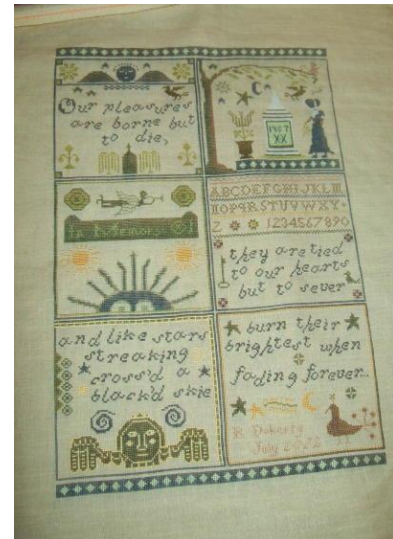 Our pleasures
are borne but
to die,
XX
In Memory
ABCDEFGHIJKLM
NOPQRSTUVWXY
Z 1234567890
they are tied
to our hearts
but to sever
and like stars
streaking
cross'd a
black'd skie
burn their
brightest when
fading forever..
R Doherty